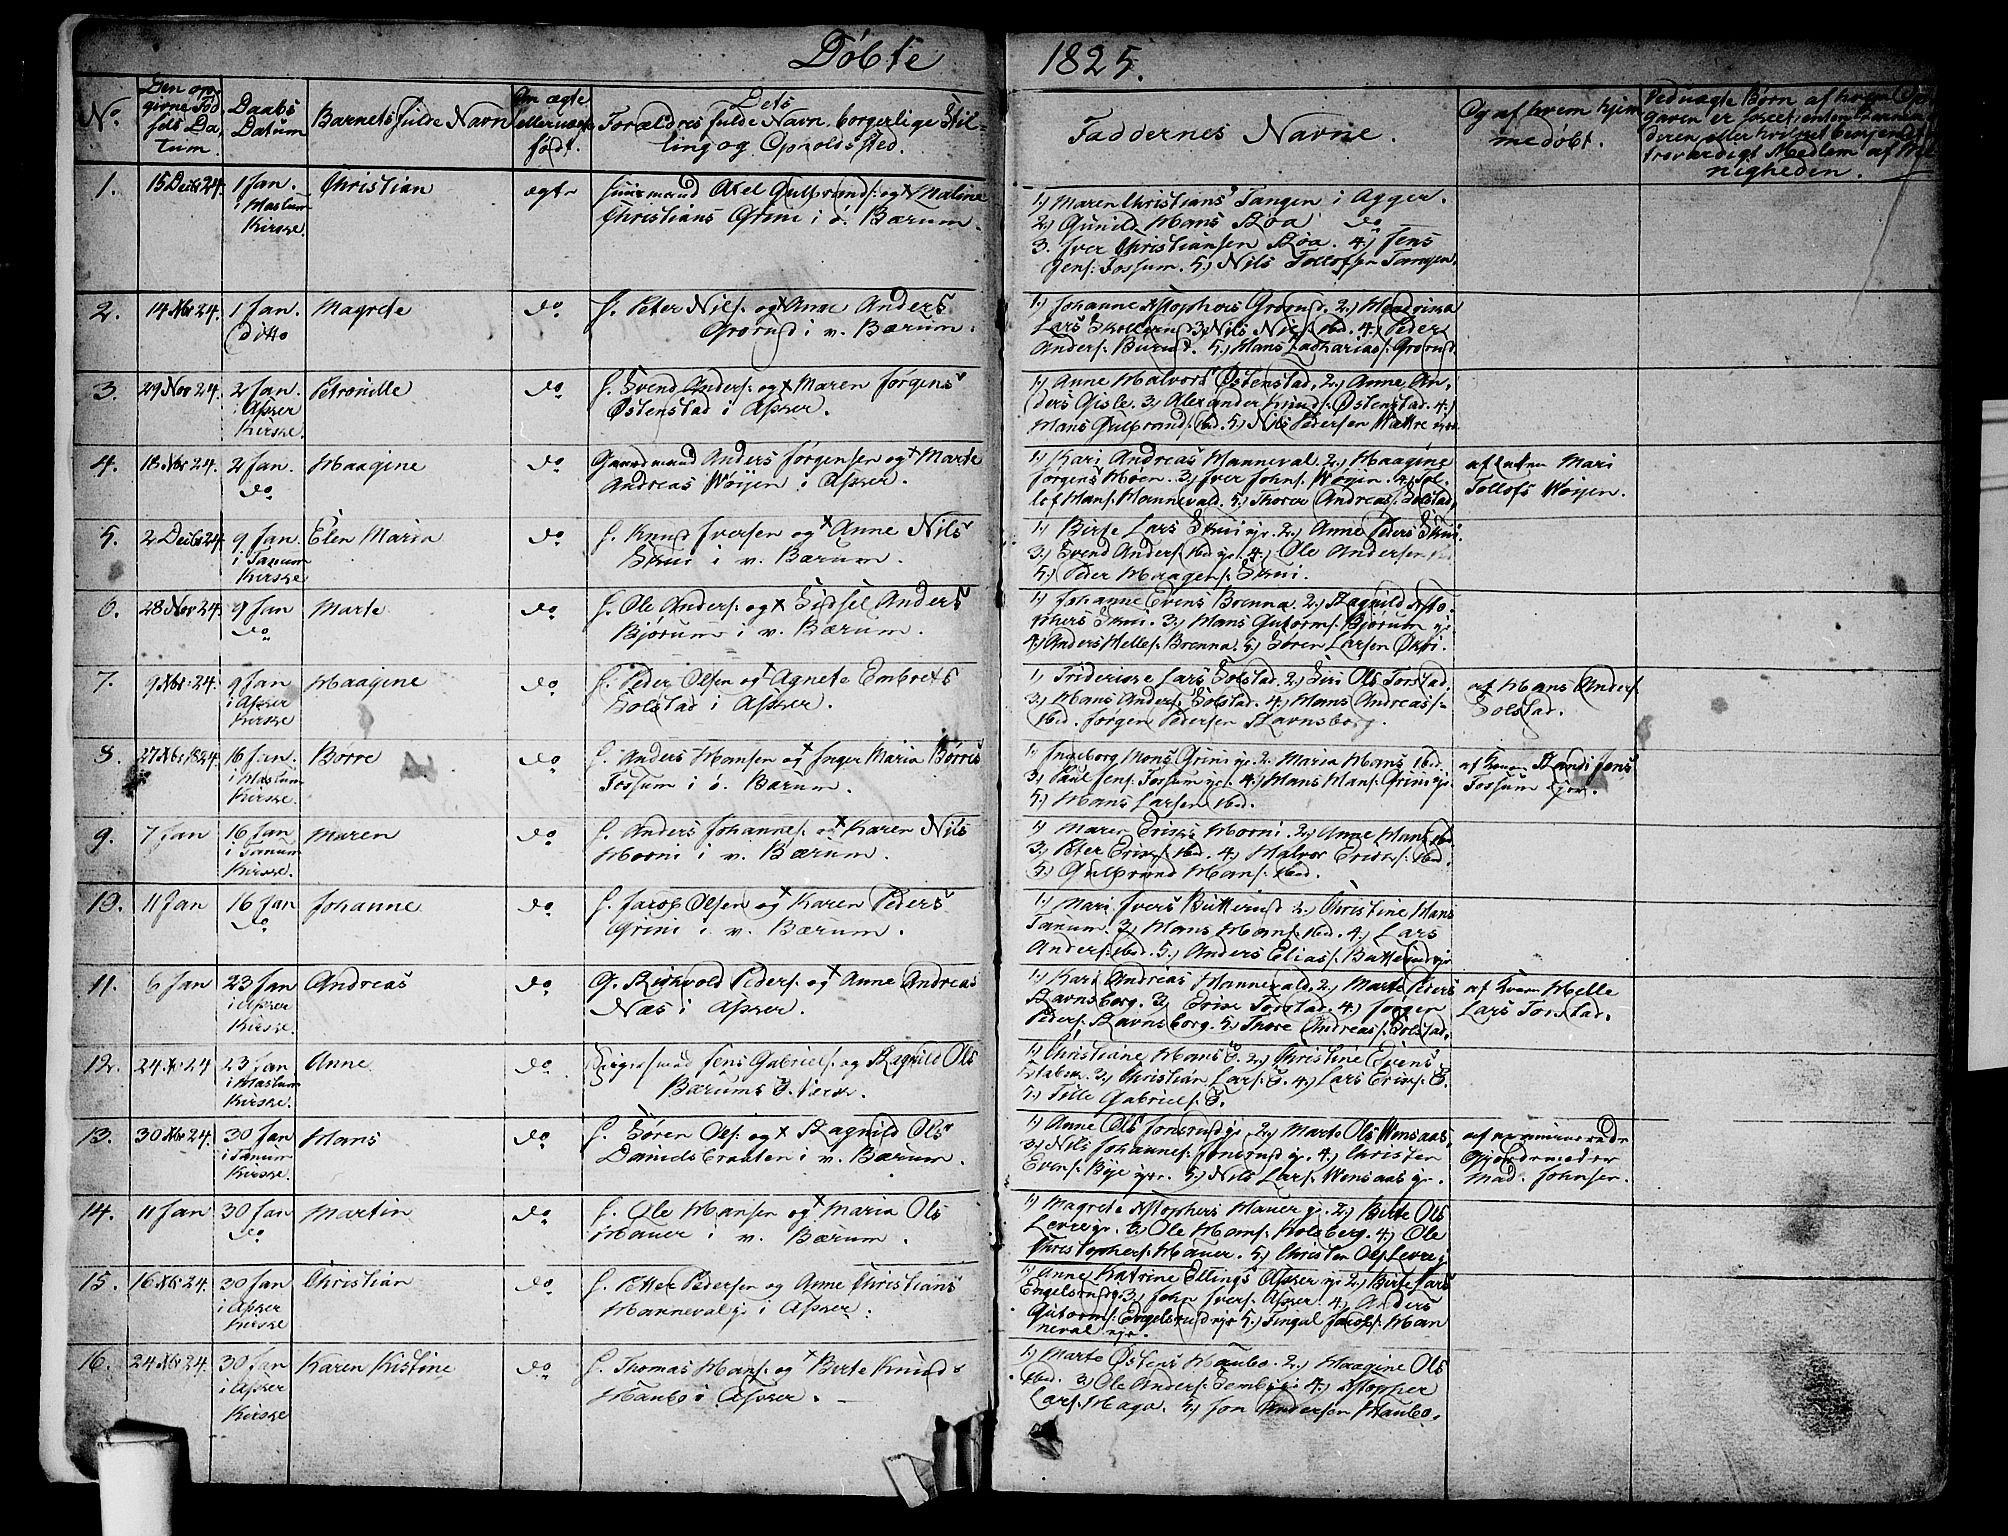 Döbte 1825.
No. Den opgivne Fødsels Datum. Daabs Datum Barnets fulde Navn Om ægte eller uægte født. Dets Forældres fulde Navn, borgerlige Stilling og Opholdssted. Faddernes Navne. Og af hvem hjemmedøbt.
1. 15 Decbr 24. 1 Jan. i Haslum Kirke. Christian ægte Huusmand Axel Gulbrands: og Maline
Christians Grini i ö. Bærum.
1.) Maren Christians Tangen i Agger.
2.) Gunild Hans Röa do
3. Iver Christiansen Röa. 4.) Jens
Jens: Fossum. 5.) Nils Tollofsen Tangen.
2. 14 Xbr 24. 1 Jan. Ditto Magrete do H. Peter Nils: og Anne Anders
Grorud i v. Bærum.
1.) Johanne Xstophers Grorud. 2.) Hendrikka
Lars Skollerud 3.) Nils Niels: ibd. 4.) Peder
Anders: Burud. 5.) Hans Zacharias: Grorud.
3. 29 Nov 24. 2 Jan. i Asker Kirke. Petronille do H. Svend Anders: og Maren Jørgens
Østenstad i Asker.
1.) Anne Halvors Østenstad, 2.) Anne An-
ders Gisle. 3.) Alexander Knuds: Østenstad. 4.)
Hans Gulbrands: ibd. 5.) Nils Pedersen
4. 18 Xbr 24. 2 Jan. do Haagine do Gaardmand Anders Jørgensen og Marte
Andreas Wøyen i Asker.
1.) Kari Andreas Hanneval. 2.) Haagine
Jørgens Moen. 3.) Iver Johns: Wøyen. 4.) Tol-
lef Hans: Hannevald. 5.) Thore Andreas: Solstad.
af Enken Mari
Tollofs Wøyen.
5. 2 Decbr 24. 9 Jan. i Tanum Kirke Elen Maria do H. Knud Iversen og Anne Nils
Skui i v. Bærum.
1.) Birte Lars Skui 2.) Anne Peders Skui.
3.) Svend Anders: ibd. 4.) Ole Andersen
5.) Peder Haagens: Skui.
6. 28 Nov 24. 9 Jan do Marte do H. Ole Anders: og Sidsel Anders
Bjørum i v. Bærum.
1.) Johanne Evens Brenna. 2.) Ragnild Xsto-
phers Skui. 3.) Hans Gutorms: Bjørum
4.) Anders Helles: Brenna. 5.) Søren Larsen Økri.
7. 9 Xbr. 24. 9 Jan i Asker Kirke Haagine do H. Peder Olsen og Agnete Embrets
Solstad i Asker.
1.) Friderikke Lars Solstad. 2.) Siri Ols Torstad.
3.) Hans Anders: Solstad. 4.) Hans Andreas:
ibd. Jørgen Pedersen Ravnsborg.
af Hans Anders:
Solstad.
8. 27 Xbr 1824. 16 Jan. i Haslum Kirke. Børre do H. Anders Hansen og Inger Maria Børres
Fossum i ö. Bærum.
1.) Ingeborg Mons Grini 2. Maria Hans ibd.
3.) Paul Jens: Fossum 4.) Hans Hans: Grini
5.) Hans Larsen ibd.
af Randi Jens
Fossum
9. 7 Jan 16 Jan i Tanum Kirke. Maren do H. Anders Johannes: og Karen Nils
Horni i v. Bærum.
1.) Maren Eriks Horni. 2.) Anne Hans ibd.
3.) Peter Eriks: ibd. 4.) Halvor Eriks: ibd.
5.) Gulbrand Hans: ibd.
10. 11 Jan 16 Jan do Johanne do H. Jacob Olsen og Karen Peders
Grini i v. Bærum.
1.) Mari Ivers Butterud 2.) Christine Hans
Tanum. 3.) Hans Hans: ibd. 4.) Lars
Anders: ibd. 5.) Anders Elias:
11. 6 Jan 23 Jan i Asker Kirke. Andreas do G. Peders: og Anne Andreas
Næs i Asker.
1.) Kari Andreas Hannevald. 2.) Marte Peders
Ravnsborg. 3.) Erik Torstad. 4.) Jørgen
Peders: Ravnsborg. 5.) Thore Andreas: Solstad.
af Helle
Lars Torstad.
12. 24 Xbr 24 23 Jan i Haslum Kirke. Anne do Jens Gabriels: og Ragnild Ols
Bærums Værk.
1.) Christiane Hans 2.) Christine Evens
3.) Christian Lars: 4.) Lars Eriks:
5.) Gabriels:
13. 30 Xbr 24. 30 Jan i Tanum Kirke. Hans do H. Søren Ols: og Ragnild Ols
Danielsbraaten i v. Bærum.
1.) Anne Ols Jonsrud 2.) Marte Ols Wensaas.
3.) Nils Johannes: Jonsrud 4.) Christen
Evens: Bye 5.) Nils Lars: Wensaas
af examinerede
Gjordemoder
Mad. Johnsen.
14. 11 Jan 30 Jan do Martin do H. Ole Hansen og Maria Ols
Hauer i v. Bærum.
1.) Magrete Xstophers Hauer 2.) Birte Ols
Levre 3.) Ole Hans: Holsberg. 4.) Ole
Christophers: Hauer. 5.) Christen Ols: Levre
15. 16 Xbr 24. 30 Jan i Asker Kirke Christian do H. Pedersen og Anne Christians
Hanneval i Asker.
1.) Anne Katrine Ellings Asker 2.) Birte Lars
Engelsrud 3.) John Ivers: Asker 4.) Anders
Gutorms: Engelsrud 5.) Fingal Jacobs: Han
neval
16. 24 Xbr 24. 30 Jan i Asker Kirke Karen Kistine do H. Thomas Hans: og Berte Knuds
Haubo i Asker.
1.) Marte Østens Haubo. 2.) Haagine Ols
ibd. 3.) Ole Anders: Sem 4.) Xstopher
Lars: Haga. 5.) Jon Andersen Haubo.